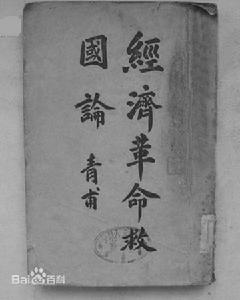 經濟革命救
國論
青甫
Bai百科